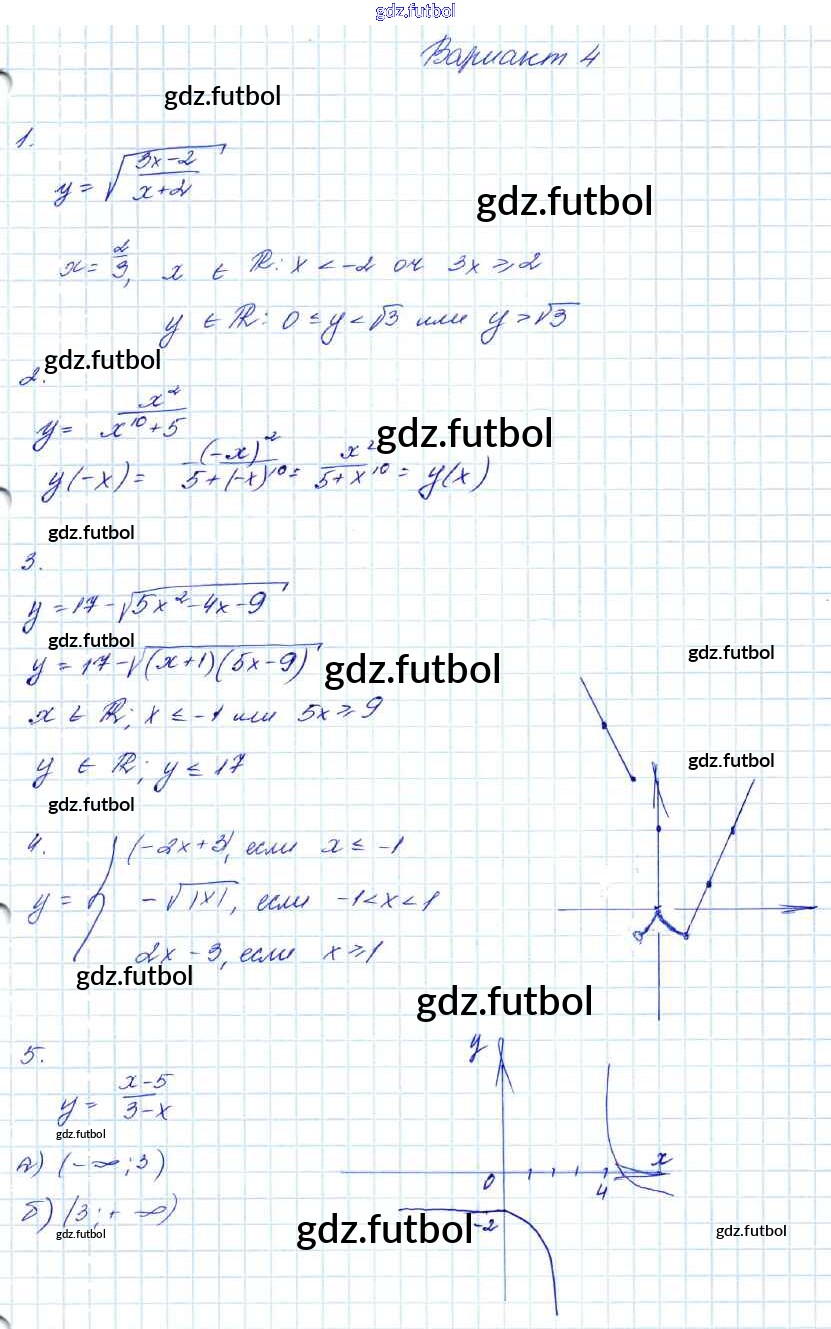 gdz.futbol
Вариант 4
gdz.futbol
1.
y = √((3x-2)/(x+2))
gdz.futbol
x = 2/3, x ∈ ℝ: x < -2 or 3x ≥ 2
y ∈ ℝ: 0 ≤ y < √3 или y > √3
gdz.futbol
2.
y = x²/(x¹⁰+5)
gdz.futbol
y(-x) = (-x)²/(5+(-x)¹⁰) = x²/(5+x¹⁰) = y(x)
gdz.futbol
3.
y = 17 - √(5x²-4x-9)
gdz.futbol
y = 17 - √((x+1)(5x-9))
gdz.futbol
gdz.futbol
x ∈ ℝ; x ≤ -1 или 5x ≥ 9
y ∈ ℝ; y ≤ 17
gdz.futbol
gdz.futbol
4.
(-2x+3), если x ≤ -1
y = { -√|x|, если -1 < x < 1
2x - 3, если x ≥ 1
gdz.futbol
gdz.futbol
5.
y
y = (x-5)/(3-x)
gdz.futbol
а) (-∞; 3)
x
0
4
б) (3; +∞)
-2
gdz.futbol
gdz.futbol
gdz.futbol